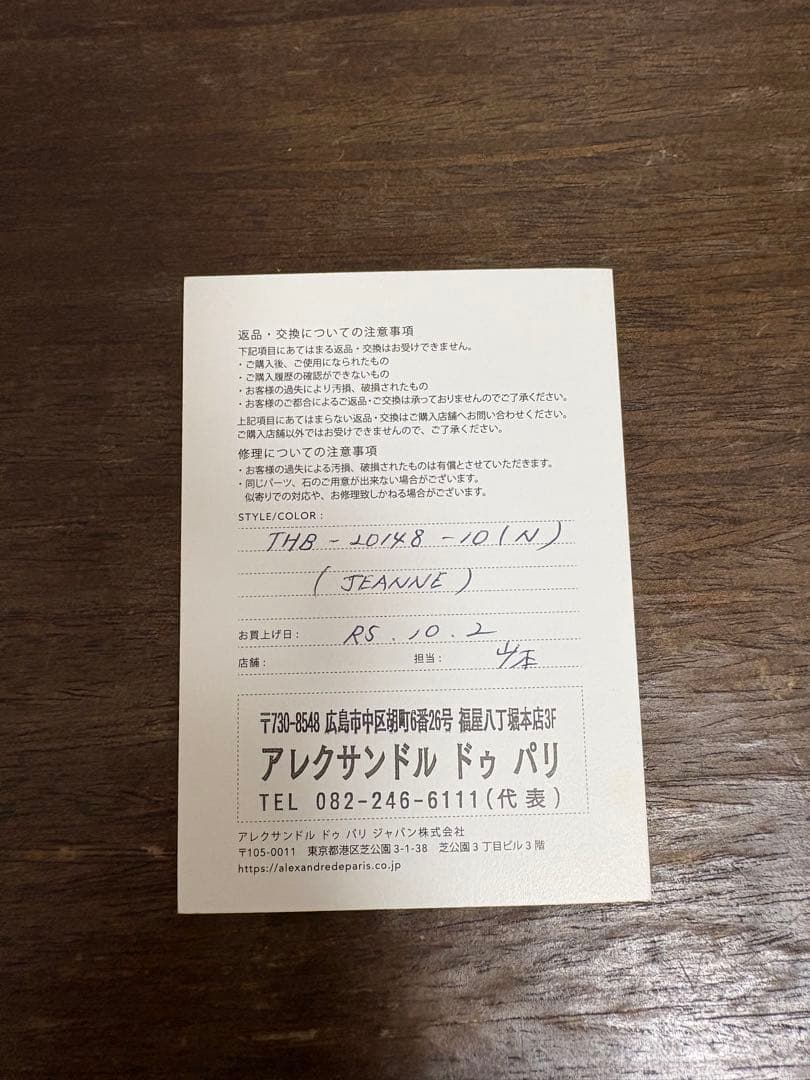 返品・交換についての注意事項
下記項目にあてはまる返品・交換はお受けできません。
・ご購入後、ご使用になられたもの
・ご購入履歴の確認ができないもの
・お客様の過失により汚損、破損されたもの
・お客様のご都合によるご返品・ご交換は承っておりませんのでご了承ください。
上記項目にあてはまらない返品・交換はご購入店舗へお問い合わせください。
ご購入店舗以外ではお受けできませんので、ご了承ください。
修理についての注意事項
・お客様の過失による汚損、破損されたものは有償とさせていただきます。
・同じパーツ、石のご用意が出来ない場合がございます。
似寄りでの対応や、お修理致しかねる場合がございます。
STYLE/COLOR :
THB-20148-10(N)
(JEANNE)
お買上げ日: R5.10.2
店舗: 担当: 山本
〒730-8548 広島市中区胡町6番26号 福屋八丁堀本店3F
アレクサンドル ドゥ パリ
TEL 082-246-6111(代表)
アレクサンドル ドゥ パリ ジャパン株式会社
〒105-0011 東京都港区芝公園3-1-38 芝公園3丁目ビル3階
https://alexandredeparis.co.jp